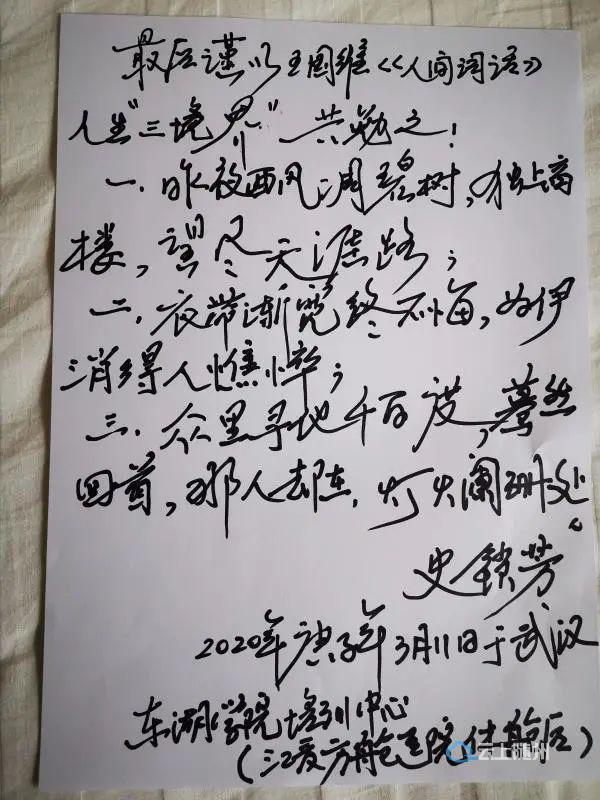 最后谨以王国维《《人间词话》
人生"三境界"共勉之!
一.昨夜西风凋碧树,独上高
楼,望尽天涯路;
二.衣带渐宽终不悔,为伊
消得人憔悴;
三.众里寻他千百度,蓦然
回首,那人却在,灯火阑珊处。
史锁芳
2020年庚子年3月11日于武汉
东湖学院培训中心
(江夏方舱医院休舱后)
云上随州